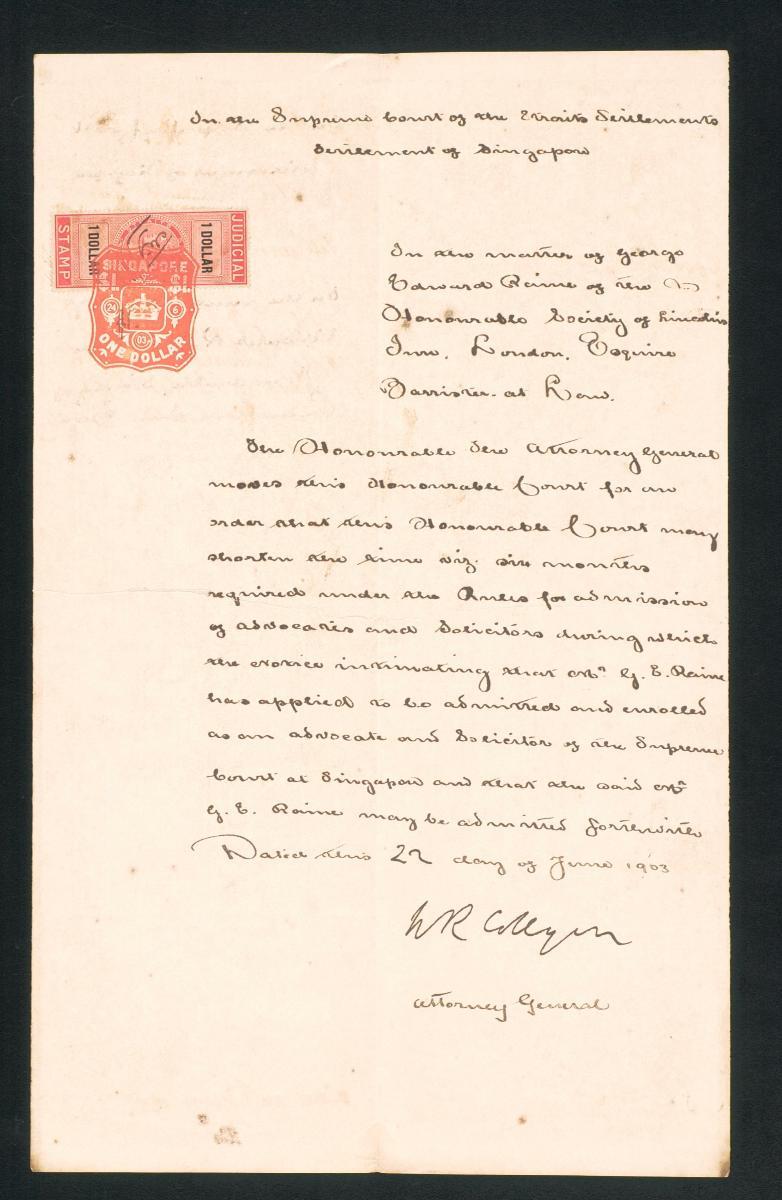 In the Supreme Court of the Straits Settlements
Settlement of Singapore
JUDICIAL
1 DOLLAR
1 DOLLAR
STAMP
SINGAPORE
$1 $1
24 6
03
ONE DOLLAR
In the matter of George
Edward Raine of the
Honourable Society of Lincolns
Inn, London, Esquire
Barrister-at Law.
The Honourable The Attorney General
moves this Honourable Court for an
order that this Honourable Court may
shorten the time viz. six months
required under the Rules for admission
of advocates and Solicitors during which
the notice intimating that Mr. G. E. Raine
has applied to be admitted and enrolled
as an advocate and Solicitor of the Supreme
Court at Singapore and that the said Mr.
G. E. Raine may be admitted forthwith
Dated this 22 day of June 1903
W R Collyer
Attorney General